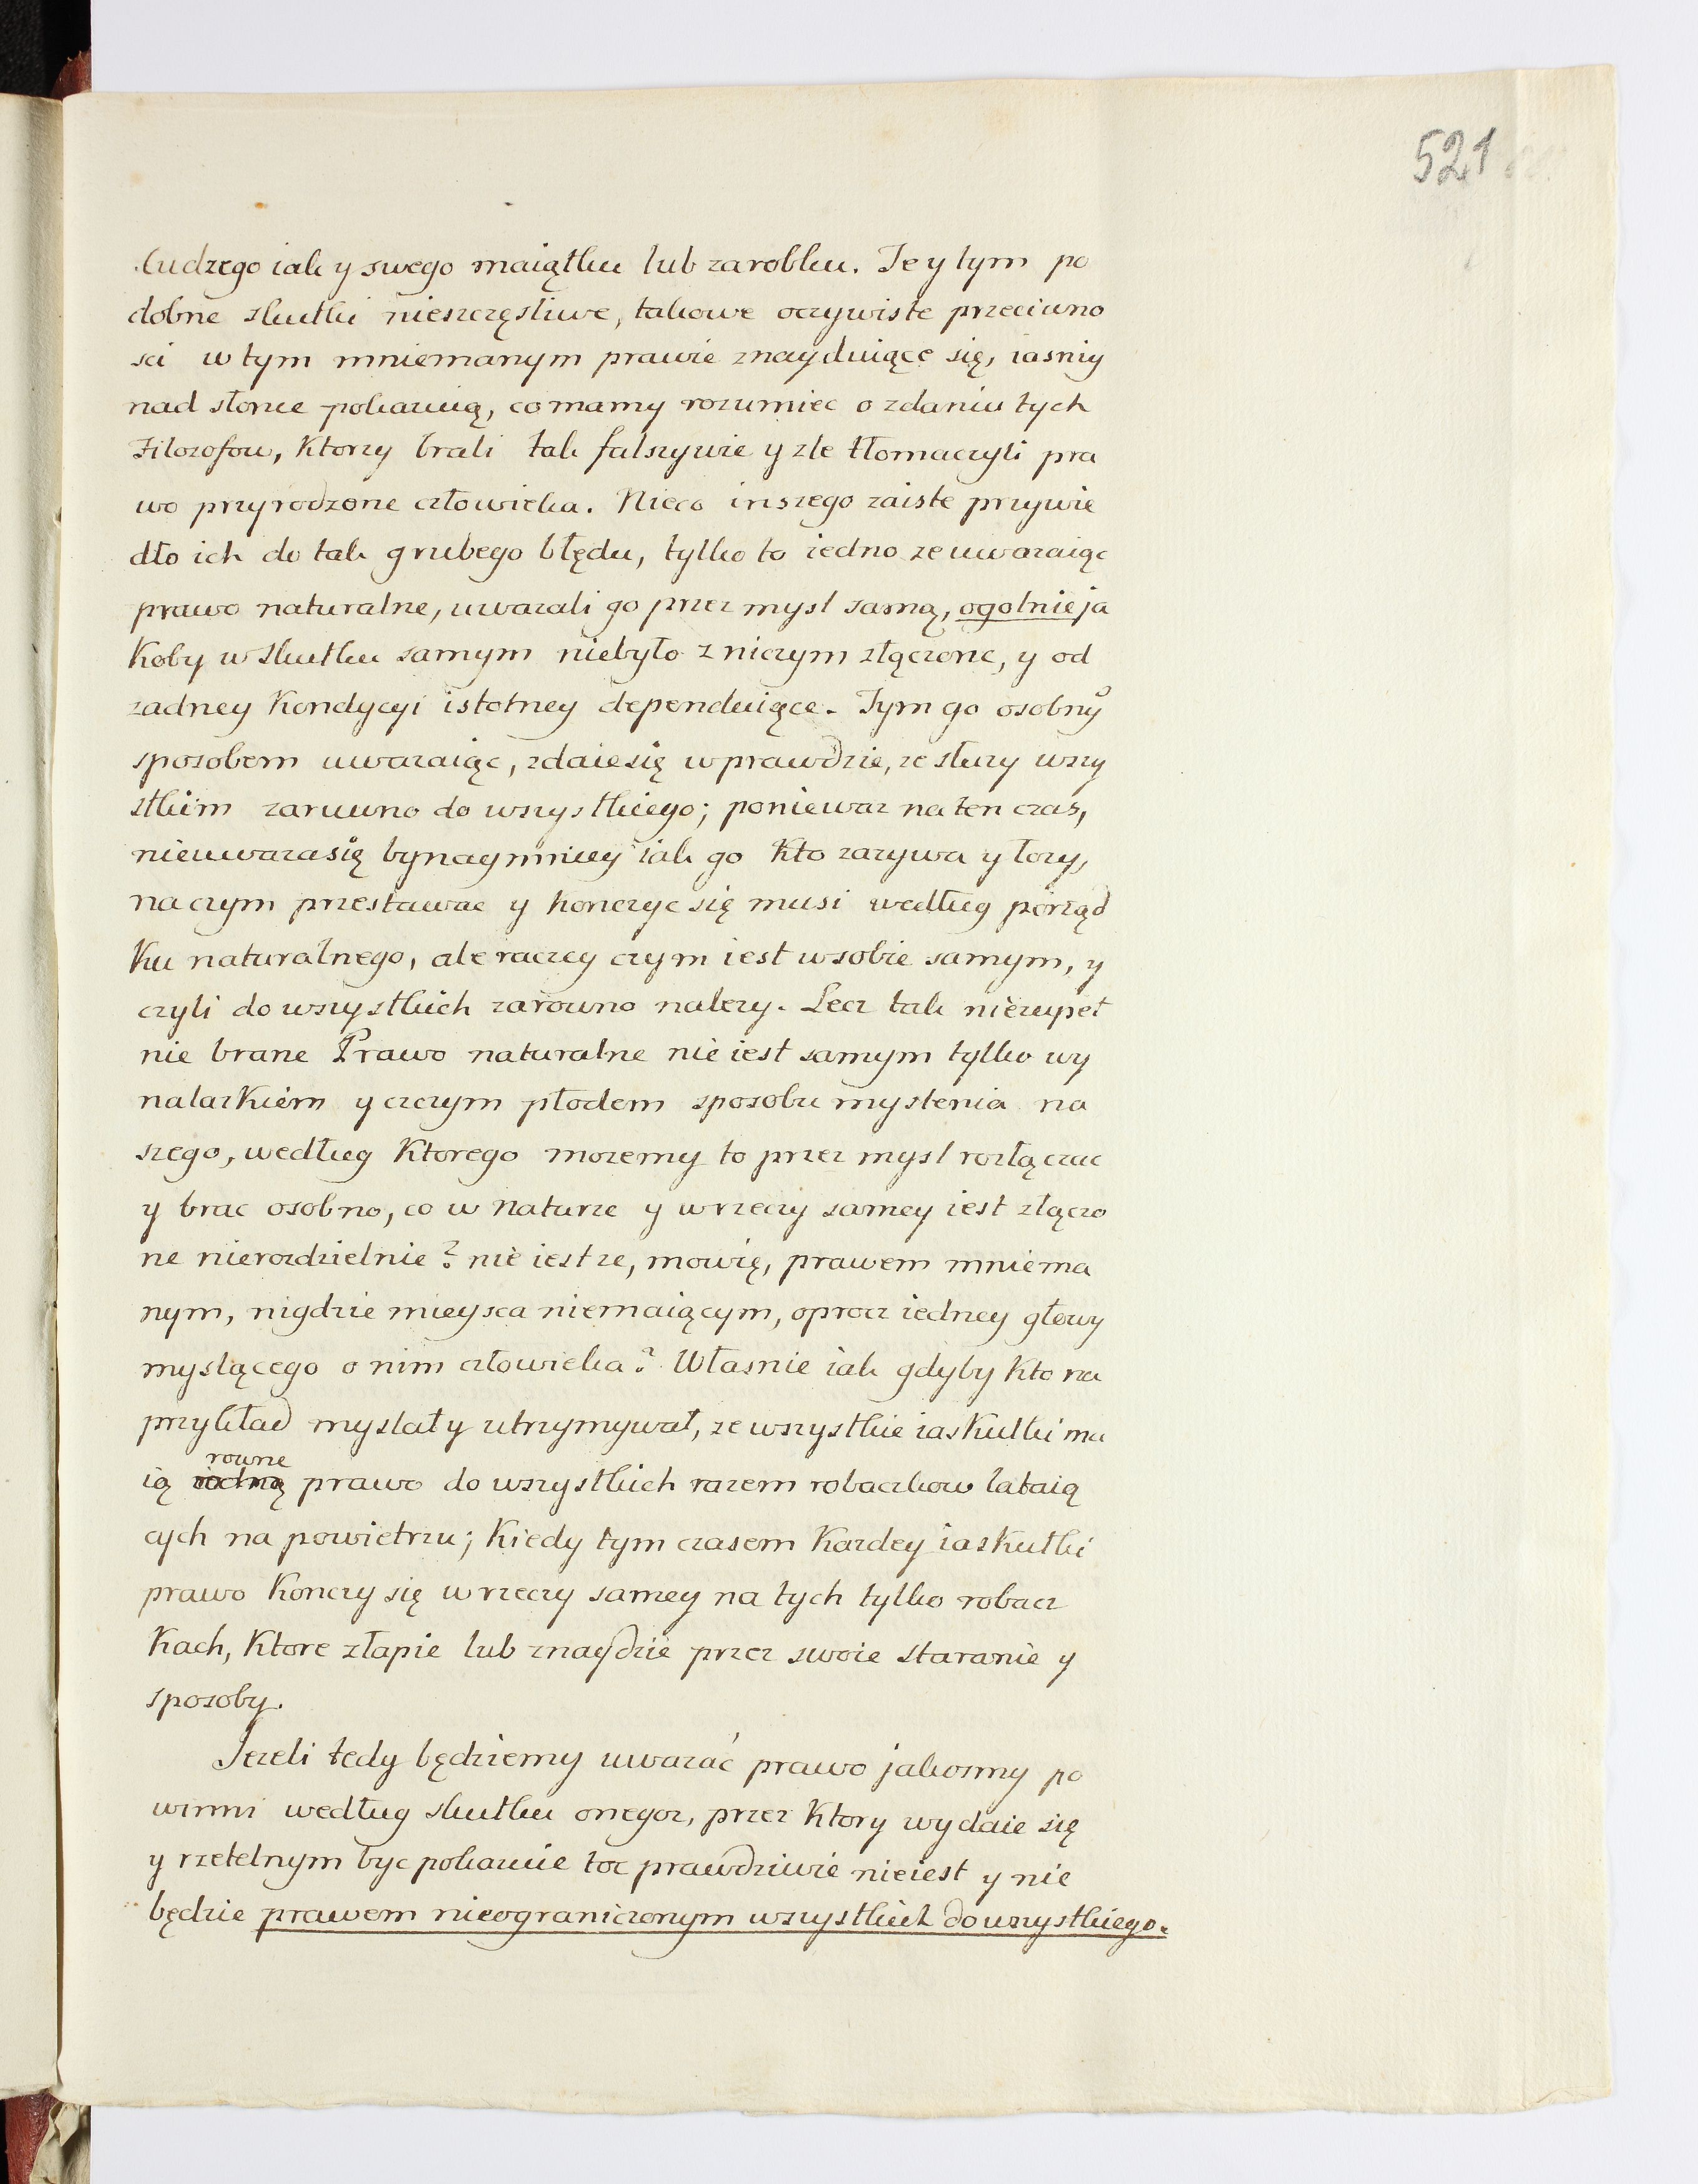 521
Cudzego iak y swego maiątku lub zarobku. Te y tym po
dobne skutki nieszczęsliwe, takowe oczywiste przeciwno
sci w tym mniemanym prawie znayduiące się, iasniy
nad słonce pokazuią, co mamy rozumiec o zdaniu tych
Filozofow, Ktorzy brali tak falszywie y zle tłomaczyli pra
wo przyrodzone człowieka. Nieco inszego zaiste przywie
dło ich do tak grubego błędu, tylko to iedno ze uwazaiąc
prawo naturalne, uwazali go przez mysl samą, ogolnie ja
Koby w skutku samym niebyło z niczym złączone, y od
zadney Kondycyi istotney dependuiące. Tym go osobny̆
sposobem uwazaiąc, zdaie się wprawdzie, ze słuzy wszy
stkim zaruwno do wszystkiego; poniewaz na ten czas,
nieuwaza się bynaymniey iak go Kto zazywa y łozy,
na czym przestawac y Konczyc się musi według porząd
Ku naturalnego, ale raczey czym iest w sobie samym, y
czyli do wszystkich zarowno nalezy. Lecz tak niezupeł
nie brane Prawo naturalne nie iest samym tylko wy
nalazkiem y czczym płodem sposobu myslenia na
szego, według Ktorego mozemy to przez mysl rozłączac
y brac osobno, co w naturze y w rzeczy samey iest złączo
ne nierozdzielnie? nie iest ze, mowię, prawem mniema
nym, nigdzie mieysca niemaiącym, oprocz iedney głowy
myslącego o nim człowieka? Własnie iak gdyby Kto na
przykład myslał y utrzymywał, ze wszystkie iaskułki ma
rowne
ią iedną prawo do wszystkich razem robaczkow lataią
cych na powietrzu; Kiedy tym czasem Kazdey iaskułki
prawo Konczy się w rzeczy samey na tych tylko robacz
Kach, Ktore złapie lub znaydzie przez swoie staranie y
sposoby.
Jezeli tedy będziemy uwazać prawo jakosmy po
winni według skutku onegoz, przez Ktory wydaie się
y rzetelnym byc pokazuie toc prawdziwie nieiest y nie
będzie prawem nieograniczonym wszystkich do wszystkiego.